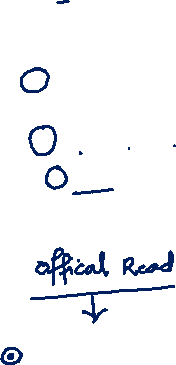 offical Read